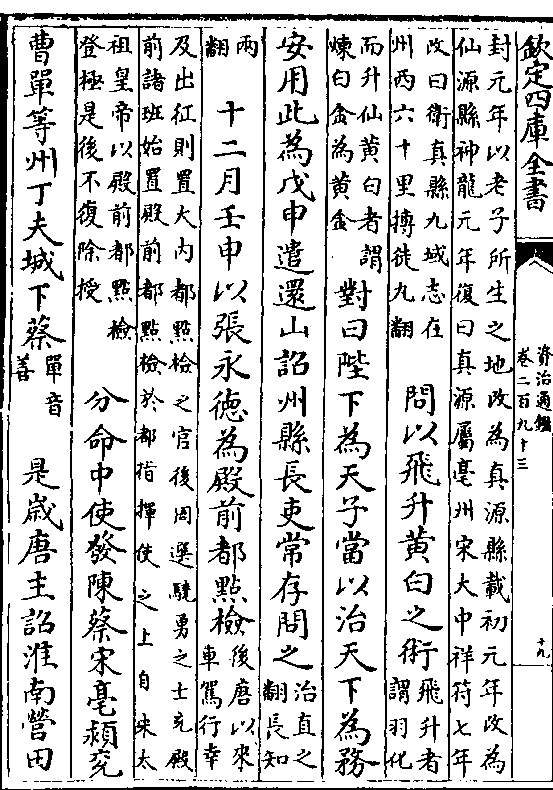 欽定四庫全書
資治通鑑
卷二百九十三
十九
封元年以老子所生之地改為真源縣載初元年改為
仙源縣神龍元年復曰真源屬亳州宋大中祥符七年
改曰衛真縣九域志在
州西六十里搏徒九翻
問以飛升黃白之術
飛升者
謂羽化
而升仙黃白者謂
煉白金為黃金
對曰陛下為天子當以治天下為務
安用此為戊申遣還山詔州縣長吏常存問之
治直之
翻長知
兩
翻
十二月壬申以張永德為殿前都點檢
後唐以來
車駕行幸
及出征則置大內都點檢之官後周選驍勇之士充殿
前諸班始置殿前都點檢於都指揮使之上自宋太
祖皇帝以殿前都點檢
登極是後不復除授
分命中使發陳蔡宋亳潁兗
曹單等州丁夫城下蔡
單音
善
是歲唐主詔淮南營田